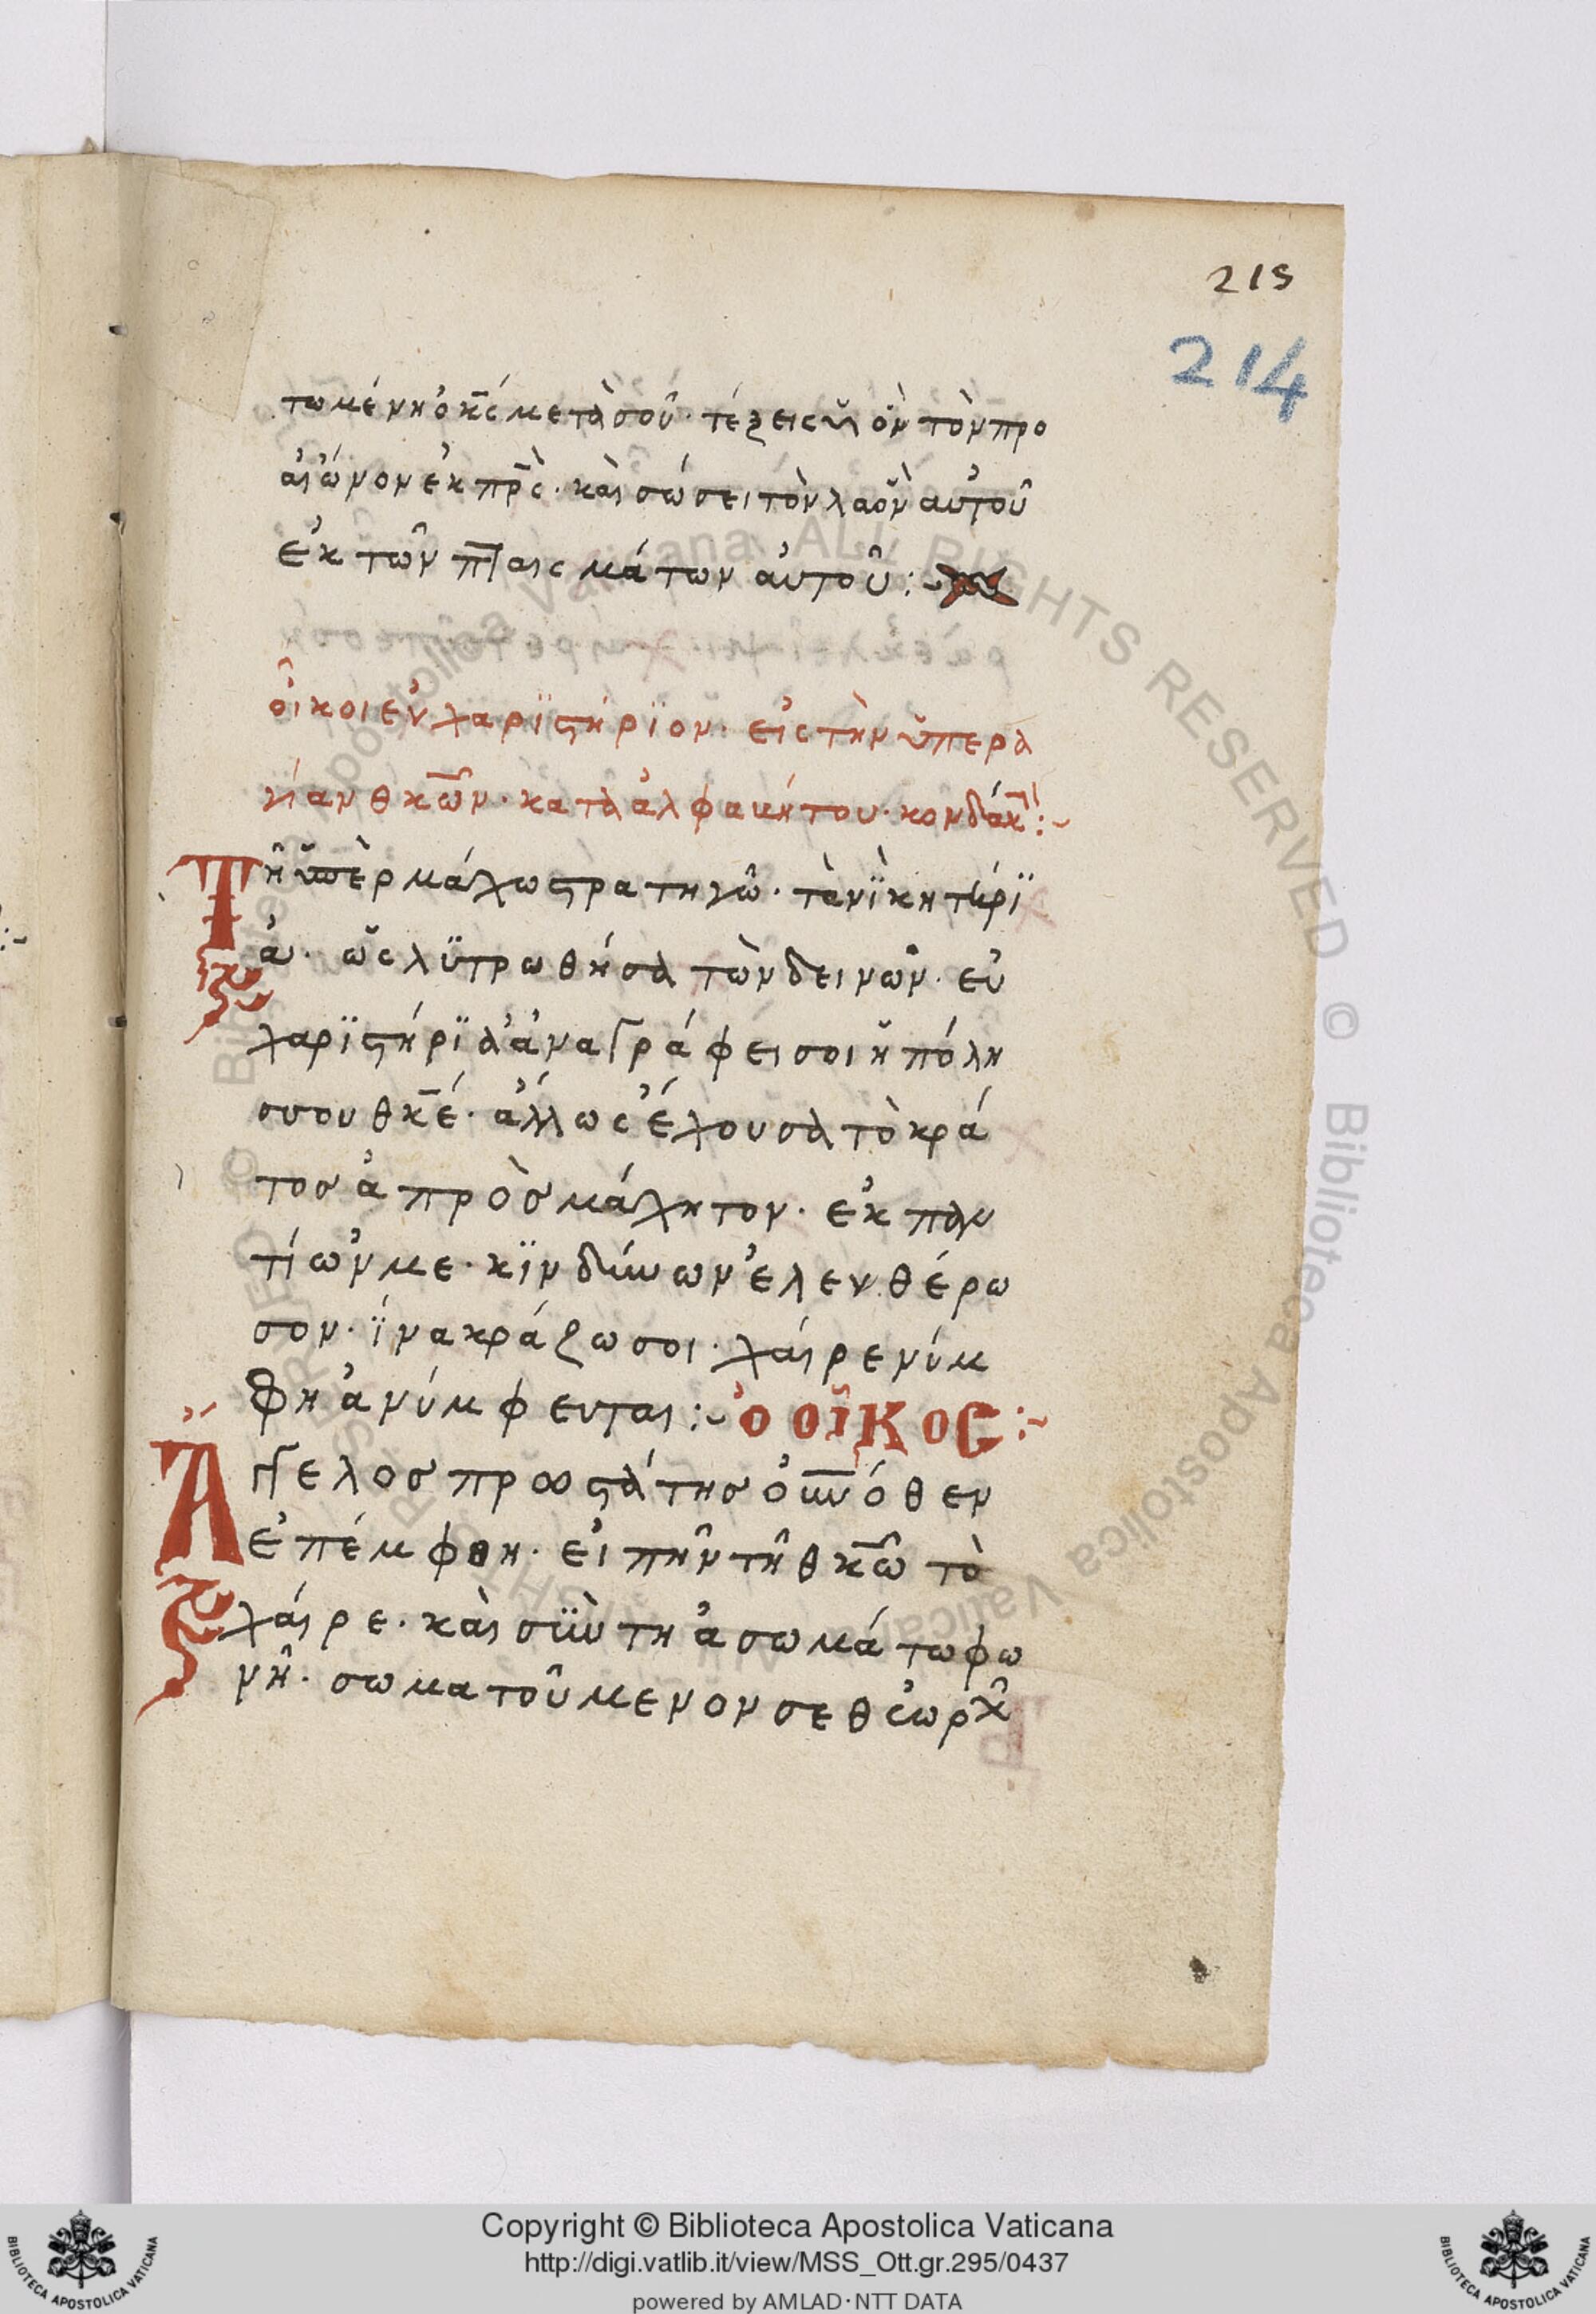 215
214
τωμένη ὁ κ̅ς μετὰ σοῦ · τέξεις ὑιὸν τὸν προ
αἰώνον ἐκ π̅ρ̅ς · καὶ σώσει τὸν λαὸν αὐτοῦ
ἐκ τῶν πταισμάτων αὐτοῦ :~
οἶκοι ἐυχαρϊστήρϊον · εἰς τὴν ὑπερα
γίαν θ̅κ̅ων · κατὰ ἀλφαυήτου · κονδάκ :~
Τῆ ὑπὲρμάχω στρατηγῶ · τὰ νϊκητήρϊ
ά · ὡς λϋτρωθήσα τῶν δεινῶν · εὐ
χαρϊστήρϊα ἀναγράφει σοι ἡ πόλη
σου θ̅κ̅ε · ἀλλ ως ἔχουσα τὸ κρά
τος ἀπρὸσμάχητον · ἐκ παν
τίων με · κϊνδύνων ἐλευθέρω
σον · ἵνα κράζω σοι · χαίρε νύμ
φη ἀνύμφευται :~ ὁ οἶκος :~
Ἄγγελος προστάτης ὀυ̅νόθεν
ἐπέμφθη · εἰπῆν τῆ θ̅κ̅ω τὸ
χαίρε · καὶ σὺν τη ἀσωμάτω φω
νῆ · σωματοῦμενον σε θεωρῶ
Copyright © Biblioteca Apostolica Vaticana
http://digi.vatlib.it/view/MSS_Ott.gr.295/0437
powered by AMLAD·NTT DATA